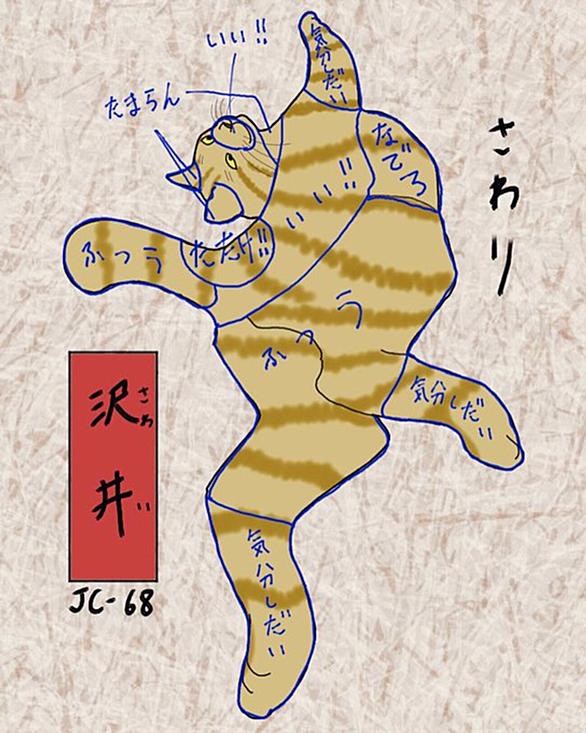 さわり
いい!!
たまらん
気分しだい
なでろ
いい!!
たたけ!!
ふつう
ふつう
気分しだい
気分しだい
沢井
さわ い
JC-68